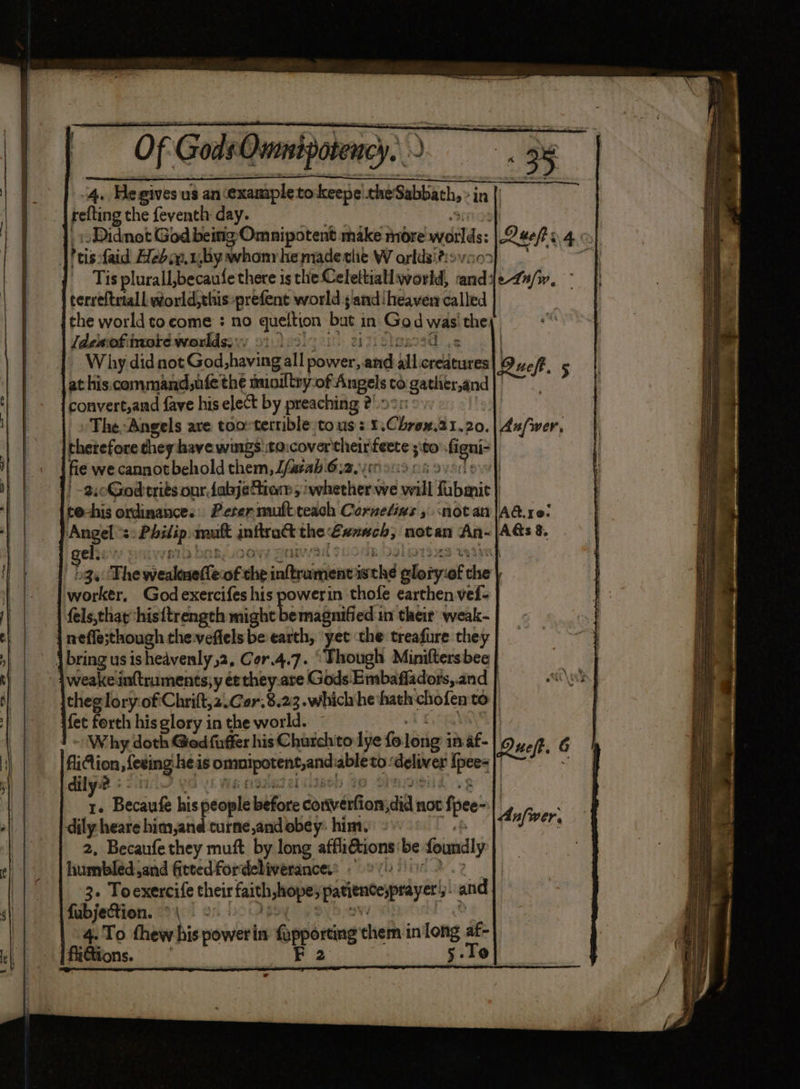 Of Gods Omnipotency. 35
4. He gives us an example to keepe the Sabbath, in
resting the seventh day.
Did not God being Omnipotent make more worlds: Quest. 4.
'tis said Heb. 1. by whom he made the Worlds?
Tis plurall, because there is the Celestiall world, and Answ.
terrestriall world, this present world, and heaven called
the world to come: no question but in God was the
Idea of more worlds.
Why did not God, having all power, and all creatures Quest. 5
at his command, use the ministry of Angels to gather, and
convert, and save his elect by preaching?
The Angels are too terrible to us: 1. Chron. 21. 20. Answer.
therefore they have wings to cover their feete, to signi-
fie we cannot behold them, Isaiah 6. 2.
2. God tries our subjection, whether we will submit
to his ordinance. Peter must teach Cornelius, not an Act. 10.
Angel: Philip must instruct the Eunuch, not an An- Acts 8.
gel.
3. The weaknesse of the instrument is the glory of the
worker. God exercises his powerin those earthen ves-
sels, that his strength might be magnified in their weak-
nesse; though the vessels be earth, yet the treasure they
bring us is heavenly, 2. Cor. 4. 7. Though Ministers bee
weake instruments, yet they are Gods Embassadors, and
the glory of Christ, 2. Cor. 8. 23. which he hath chosen to
set forth his glory in the world.
Why doth God suffer his Church to lye so long in af- Quest. 6
fliction, seeing he is omnipotent, and able to deliver spee-
dily?
1. Because his people before conversion, did not spee- Answer.
dily heare him, and turne, and obey him.
2. Because they must by long afflictions be soundly
humbled, and fitted for deliverance.
3. To exercise their faith, hope, patience, prayer, and
subjection.
4. To shew his power in supporting them in long af-
flictions.
F 2 5. To